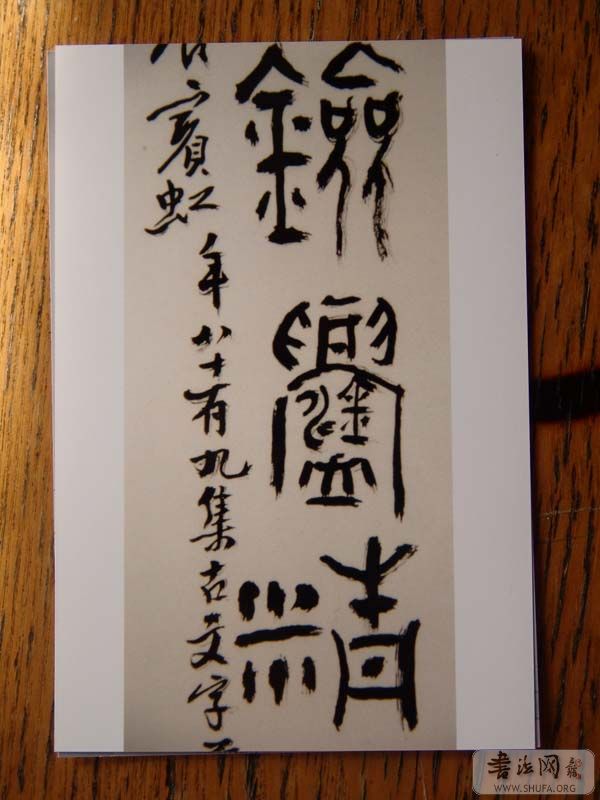 鐱鑄
賓虹年八十有九集古文字
書法网
WWW.SHUFA.ORG